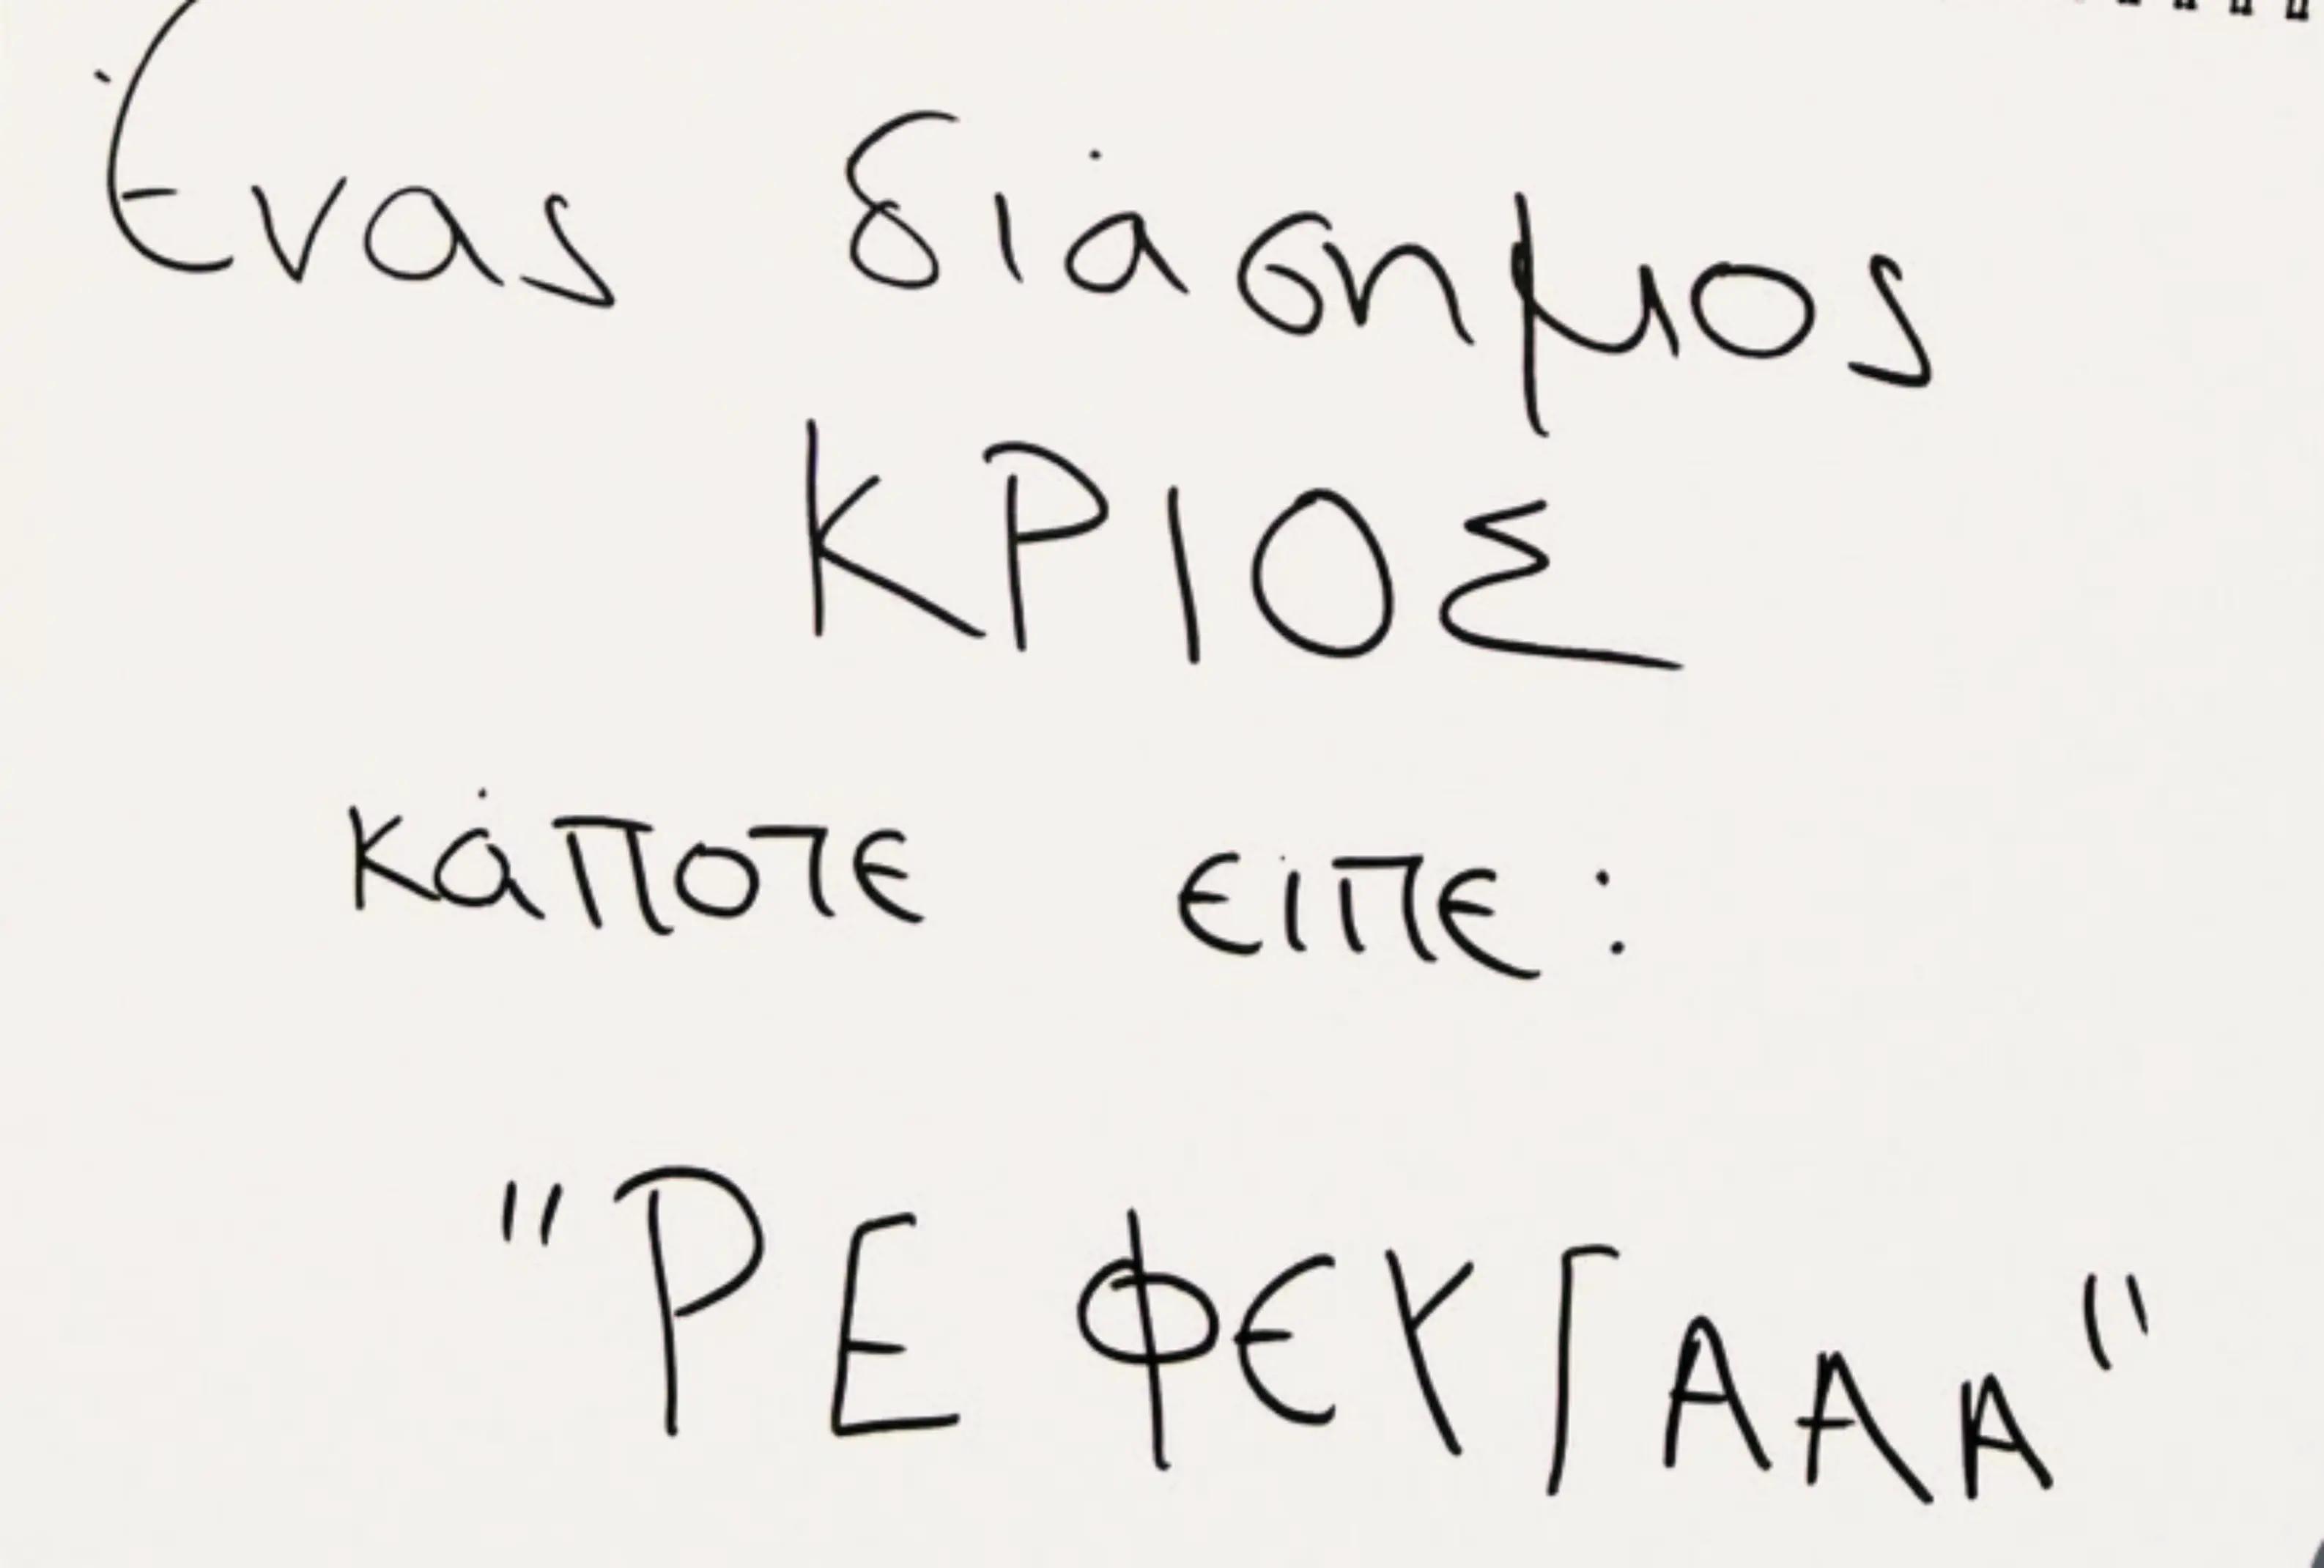 Ένας διάσημος
ΚΡΙΟΣ
κάποτε είπε:
"ΡΕ ΦΕΥΓΑΑΑ"